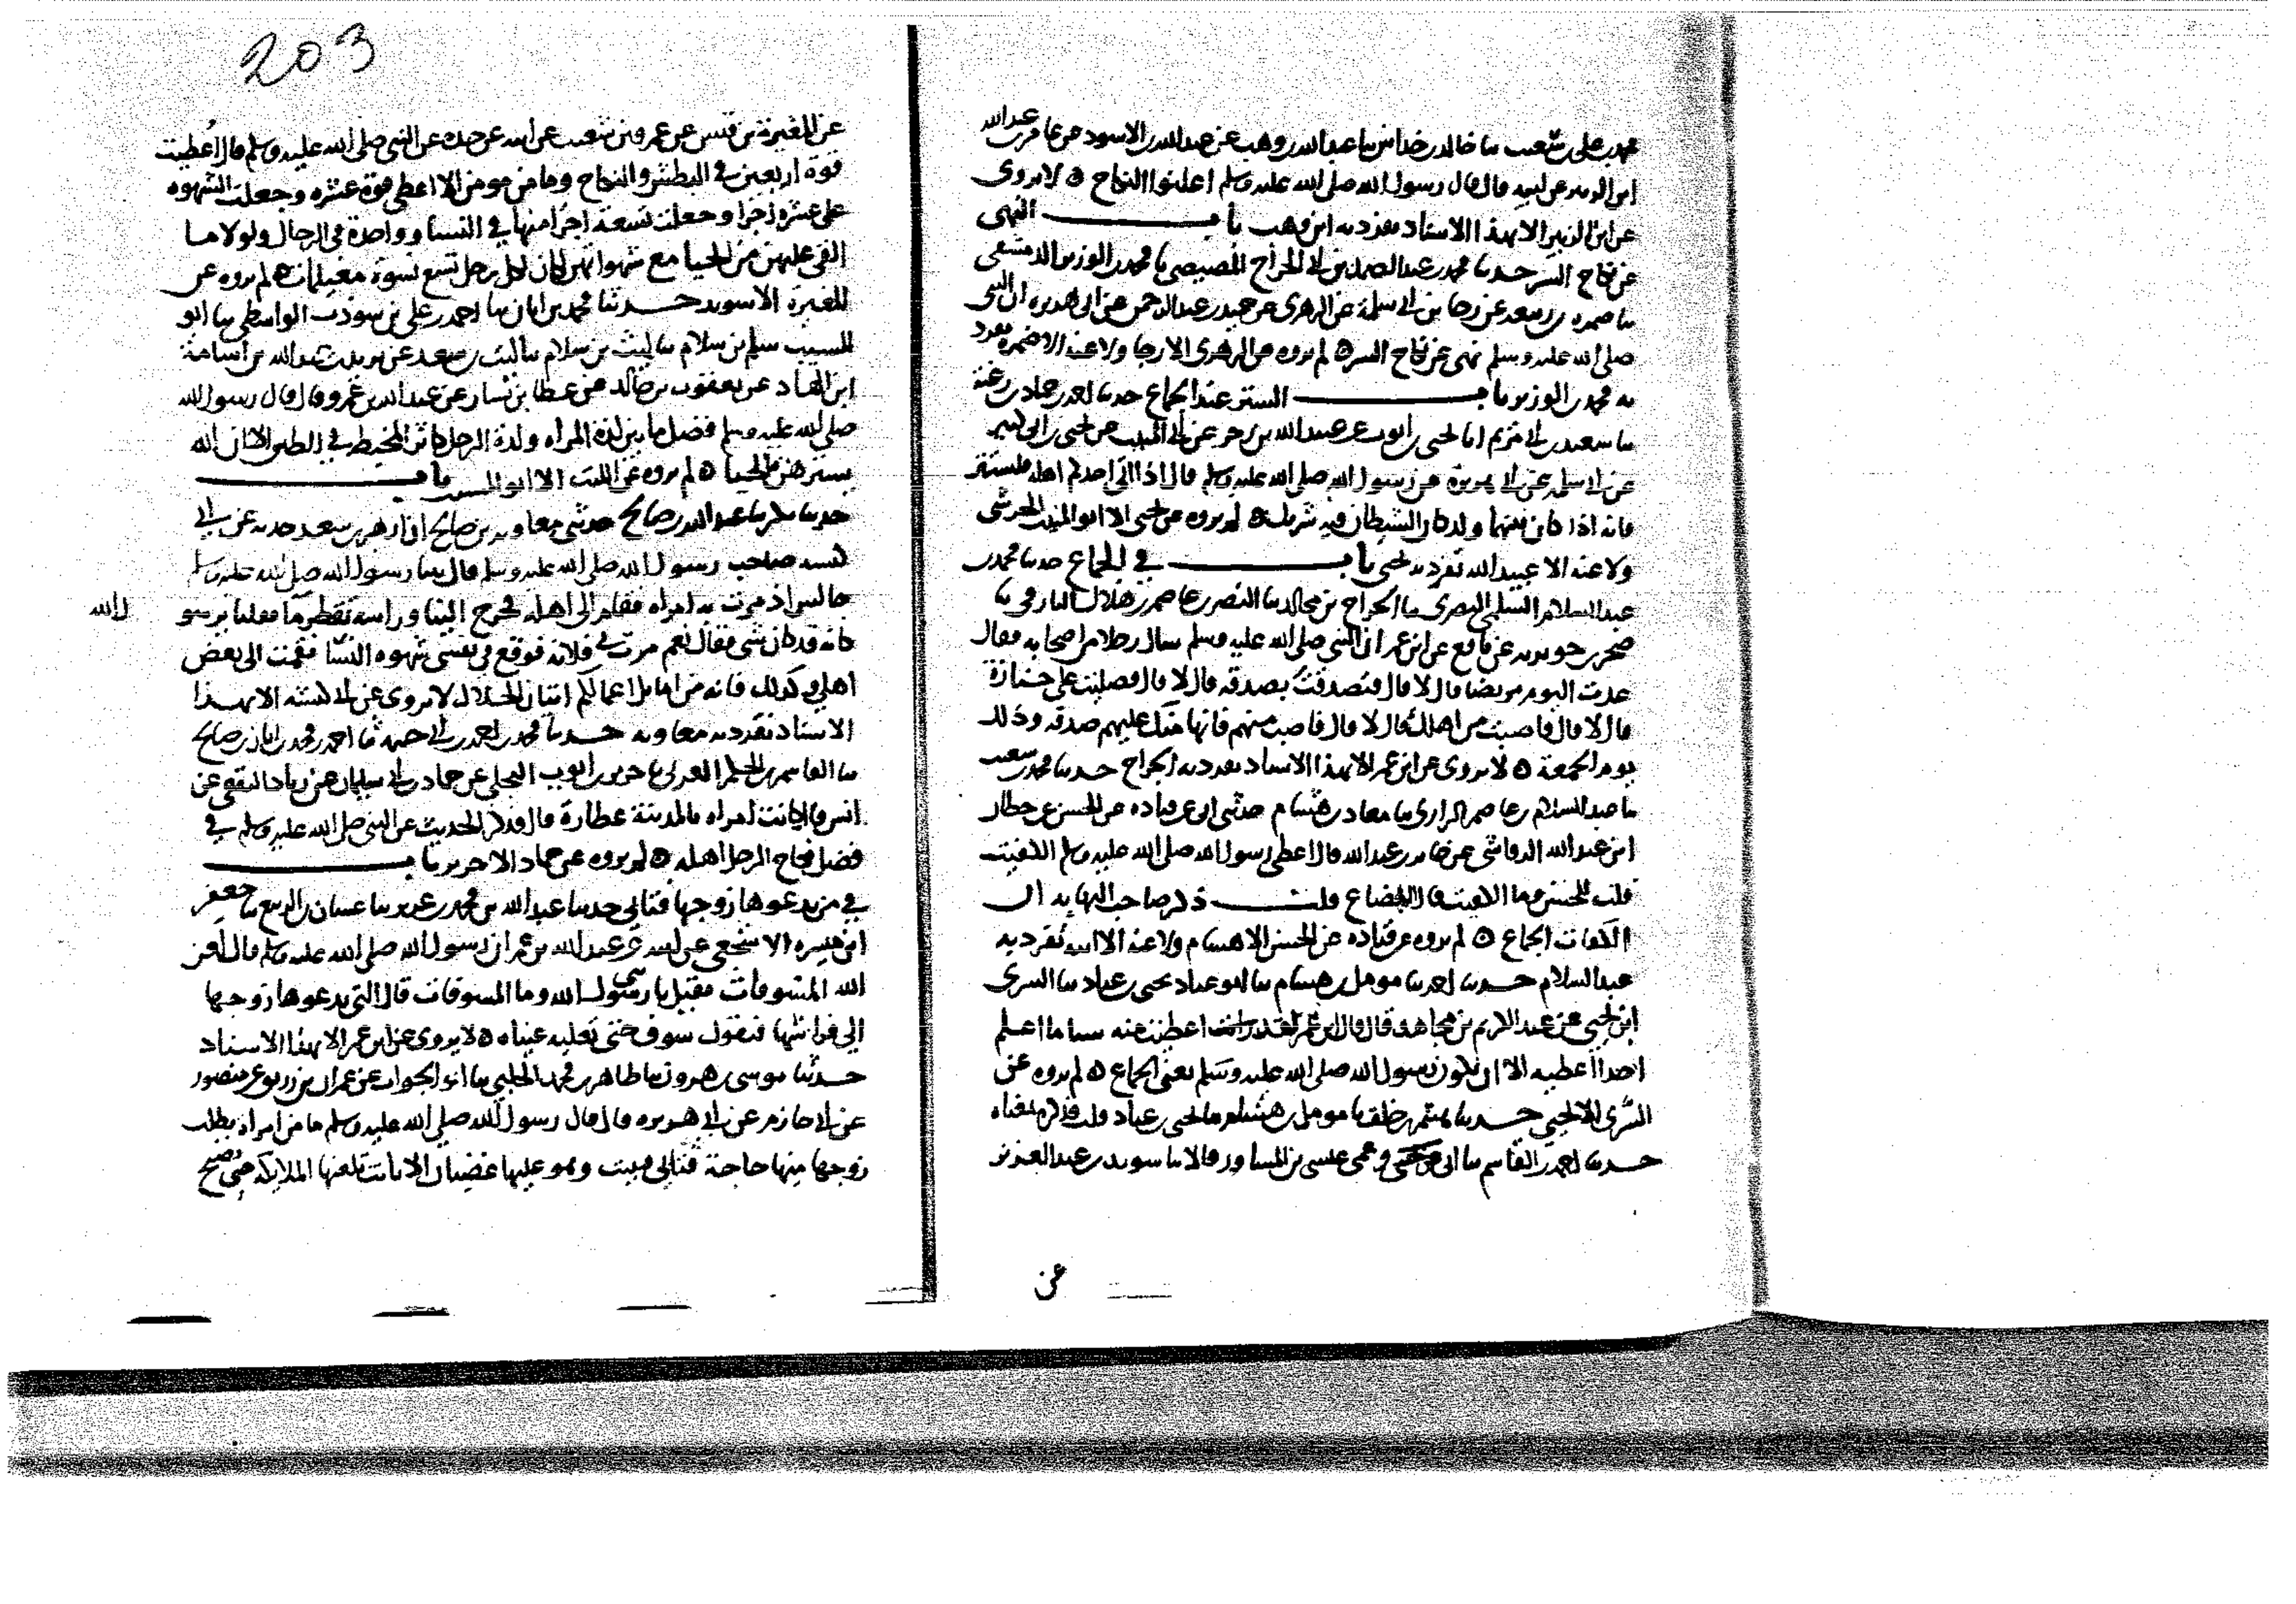 محمد بن علي بن شعيب ثنا خالد بن خداش ثنا عبد الله بن وهب عن عبد الله بن الاسود عن عامر بن عبد الله
ابن الزبير عن ابيه قال قال رسول الله صلى الله عليه وسلم اعلنوا النكاح ه لا يروى
عن ابن الزبير الا بهذا الاسناد تفرد به ابن وهب باب النهى
عن نكاح السر حدثنا محمد بن عبد الصمد بن ابي الجراح المصيصي ثنا محمد بن الوزير الدمشقي
ثنا ضمرة بن ربيعة عن رجا بن ابي سلمة عن الزهري عن حميد بن عبد الرحمن عن ابي هريرة ان النبي
صلى الله عليه وسلم نهى عن نكاح السر ه لم يروه عن الزهري الا رجا ولا عنه الا ضمرة تفرد
به محمد بن الوزير باب الستر عند الجماع حدثنا احمد بن حماد بن زغبة
ثنا سعيد بن ابي مريم انا يحيى بن ايوب عن عبيد الله بن زحر عن ابي المنيب عن يحيى بن ابي كثير
عن ابي سلمة عن ابي هريرة عن رسول الله صلى الله عليه وسلم قال اذا اتى احدكم اهله فليستتر
فانه اذا كان بينهما ولد كان الشيطان فيه شريك ه لم يروه عن يحيى الا ابو المنيب الجرشي
ولا عنه الا عبيد الله تفرد به يحيى باب في الجماع حدثنا محمد بن
عبد السلام السلمي البصري ثنا الجراح بن مخلد ثنا النضر بن عاصم بن هلال البارقي ثنا
صخر بن جويرية عن نافع عن ابن عمر ان النبي صلى الله عليه وسلم سال رجلا من اصحابه فقال
عدت اليوم مريضا قال لا قال فتصدقت بصدقه قال لا قال فصليت على جنازة
قال لا قال فاصبت من اهلك قال لا قال فاصب منهم فانها منك عليهم صدقه وذلك
يوم الجمعة ه لا يروى عن ابن عمر الا بهذا الاسناد تفرد به الجراح حدثنا محمد بن شعيب
ثنا عبد السلام بن عاصم الرازي ثنا معاذ بن هشام حدثني ابي عن قتاده عن الحسن عن حطان
ابن عبد الله الرقاشي عن جابر بن عبد الله قال اعطي رسول الله صلى الله عليه وسلم الكفيت
قلت للحسن وما الكفيت قال البضاع قلت ذكر صاحب النهايه ان
الكفات الجماع ه لم يروه عن قتاده عن الحسن الا هشام ولا عنه الا ابنه تفرد به
عبد السلام حدثنا احمد ثنا مومل بن هشام ثنا ابو عباد يحيى بن عباد ثنا السري
ابن يحيى عن عبد الكريم عن مجاهد قال قال ابن عمر لقد اعطيت منه شيا ما اعلم
احدا اعطيه الا ان يكون رسول الله صلى الله عليه وسلم يعني الجماع ه لم يروه عن
السري الا يحيى حدثنا خلف ثنا مومل بن هشام ثنا يحيى بن عباد قلت فذكر معناه
حدثنا احمد بن القاسم ثنا ابي وعمي عيسى بن المساور قالا ثنا سويد بن عبد العزيز
عن
203
عن المغيرة بن قيس عن عمرو بن شعيب عن ابيه عن جده عن النبي صلى الله عليه وسلم قال اُعطيت
قوة اربعين في البطش والنكاح وما من مومن الا اعطي قوة عشره وجعلت الشهوه
على عشره اجزا وجعلت تسعة اجزا منها في النسا وواحدة في الرجال ولولا ما
القي عليهن من الحيا مع شهواتهن لكان لكل رجل تسع نسوة مغتلمات ه لم يروه عن
المغيرة الا سويد حدثنا محمد بن ابان ثنا احمد بن علي بن شوذب الواسطي ثنا ابو
المسيب سلم بن سلام ثنا ليث بن سلام ثنا ليث بن سعد عن يزيد بن عبد الله بن اسامة
ابن الهاد عن يعقوب بن خالد عن عطا بن يسار عن عبد الله بن عمرو قال قال رسول الله
صلى الله عليه وسلم فضل ما بين لذة المراه ولذة الرجل كاثر المخيط في الطين الا ان الله
يسترهن بالحيا ه لم يروه عن الليث الا ابو المسيب باب
حدثنا بكر ثنا عبد الله بن صالح حدثني معاويه بن صالح ان ازهر بن سعيد حدثه عن ابي
كبشه صاحب رسول الله صلى الله عليه وسلم قال بينا رسول الله صلى الله عليه وسلم
جالس اذ مرت به امراه فقام الى اهله فخرج الينا وراسه تقطر ما فقلنا يرسو ل الله
كانه قد كان شي فقال نعم مرت بي فلانه فوقع في نفسي شهوه النسا فقمت الى بعض
اهلي وكذلك فانه من اماثل اعمالكم اتيان الحلال لا يروى عن ابي كبشه الا بهذا
الاسناد تفرد به معاويه حدثنا محمد بن احمد بن ابي خيثمة ثنا احمد بن محمد بن ابان بن صالح
ثنا القاسم بن الحكم العرني ثنا جرير بن ايوب البجلي عن حماد بن ابي سليمان عن زياد الثقفي عن
انس قال كانت امراه بالمدينة عطارة قال وذكر الحديث عن النبي صلى الله عليه وسلم في
فضل نكاح الرجل اهله ه لم يروه عن حماد الا جرير باب
في من يدعوها زوجها فتابى حدثنا عبد الله بن محمد بن عزيز ثنا غسان بن الربيع ثنا جعفر
ابن ميسره الاشجعي عن ابيه عن عبد الله بن عمر ان رسول الله صلى الله عليه وسلم قال لعن
الله المسوفات فقيل يا رسول الله وما المسوفات قال التي يدعوها زوجها
الى فراشها فتقول سوف حتى تغلبه عيناه ه لا يروى عن ابن عمر الا بهذا الاسناد
حدثنا موسى بن هرون ثنا طاهر بن محمد الحلبي ثنا ابو الجواب عن عمار بن زريق عن منصور
عن ابي حازم عن ابي هريره قال قال رسول الله صلى الله عليه وسلم ما من امراه يطلب
زوجها منها حاجة فتابى فيبت وهو عليها غضبان الا باتت تلعنها الملايكة حتى تصبح